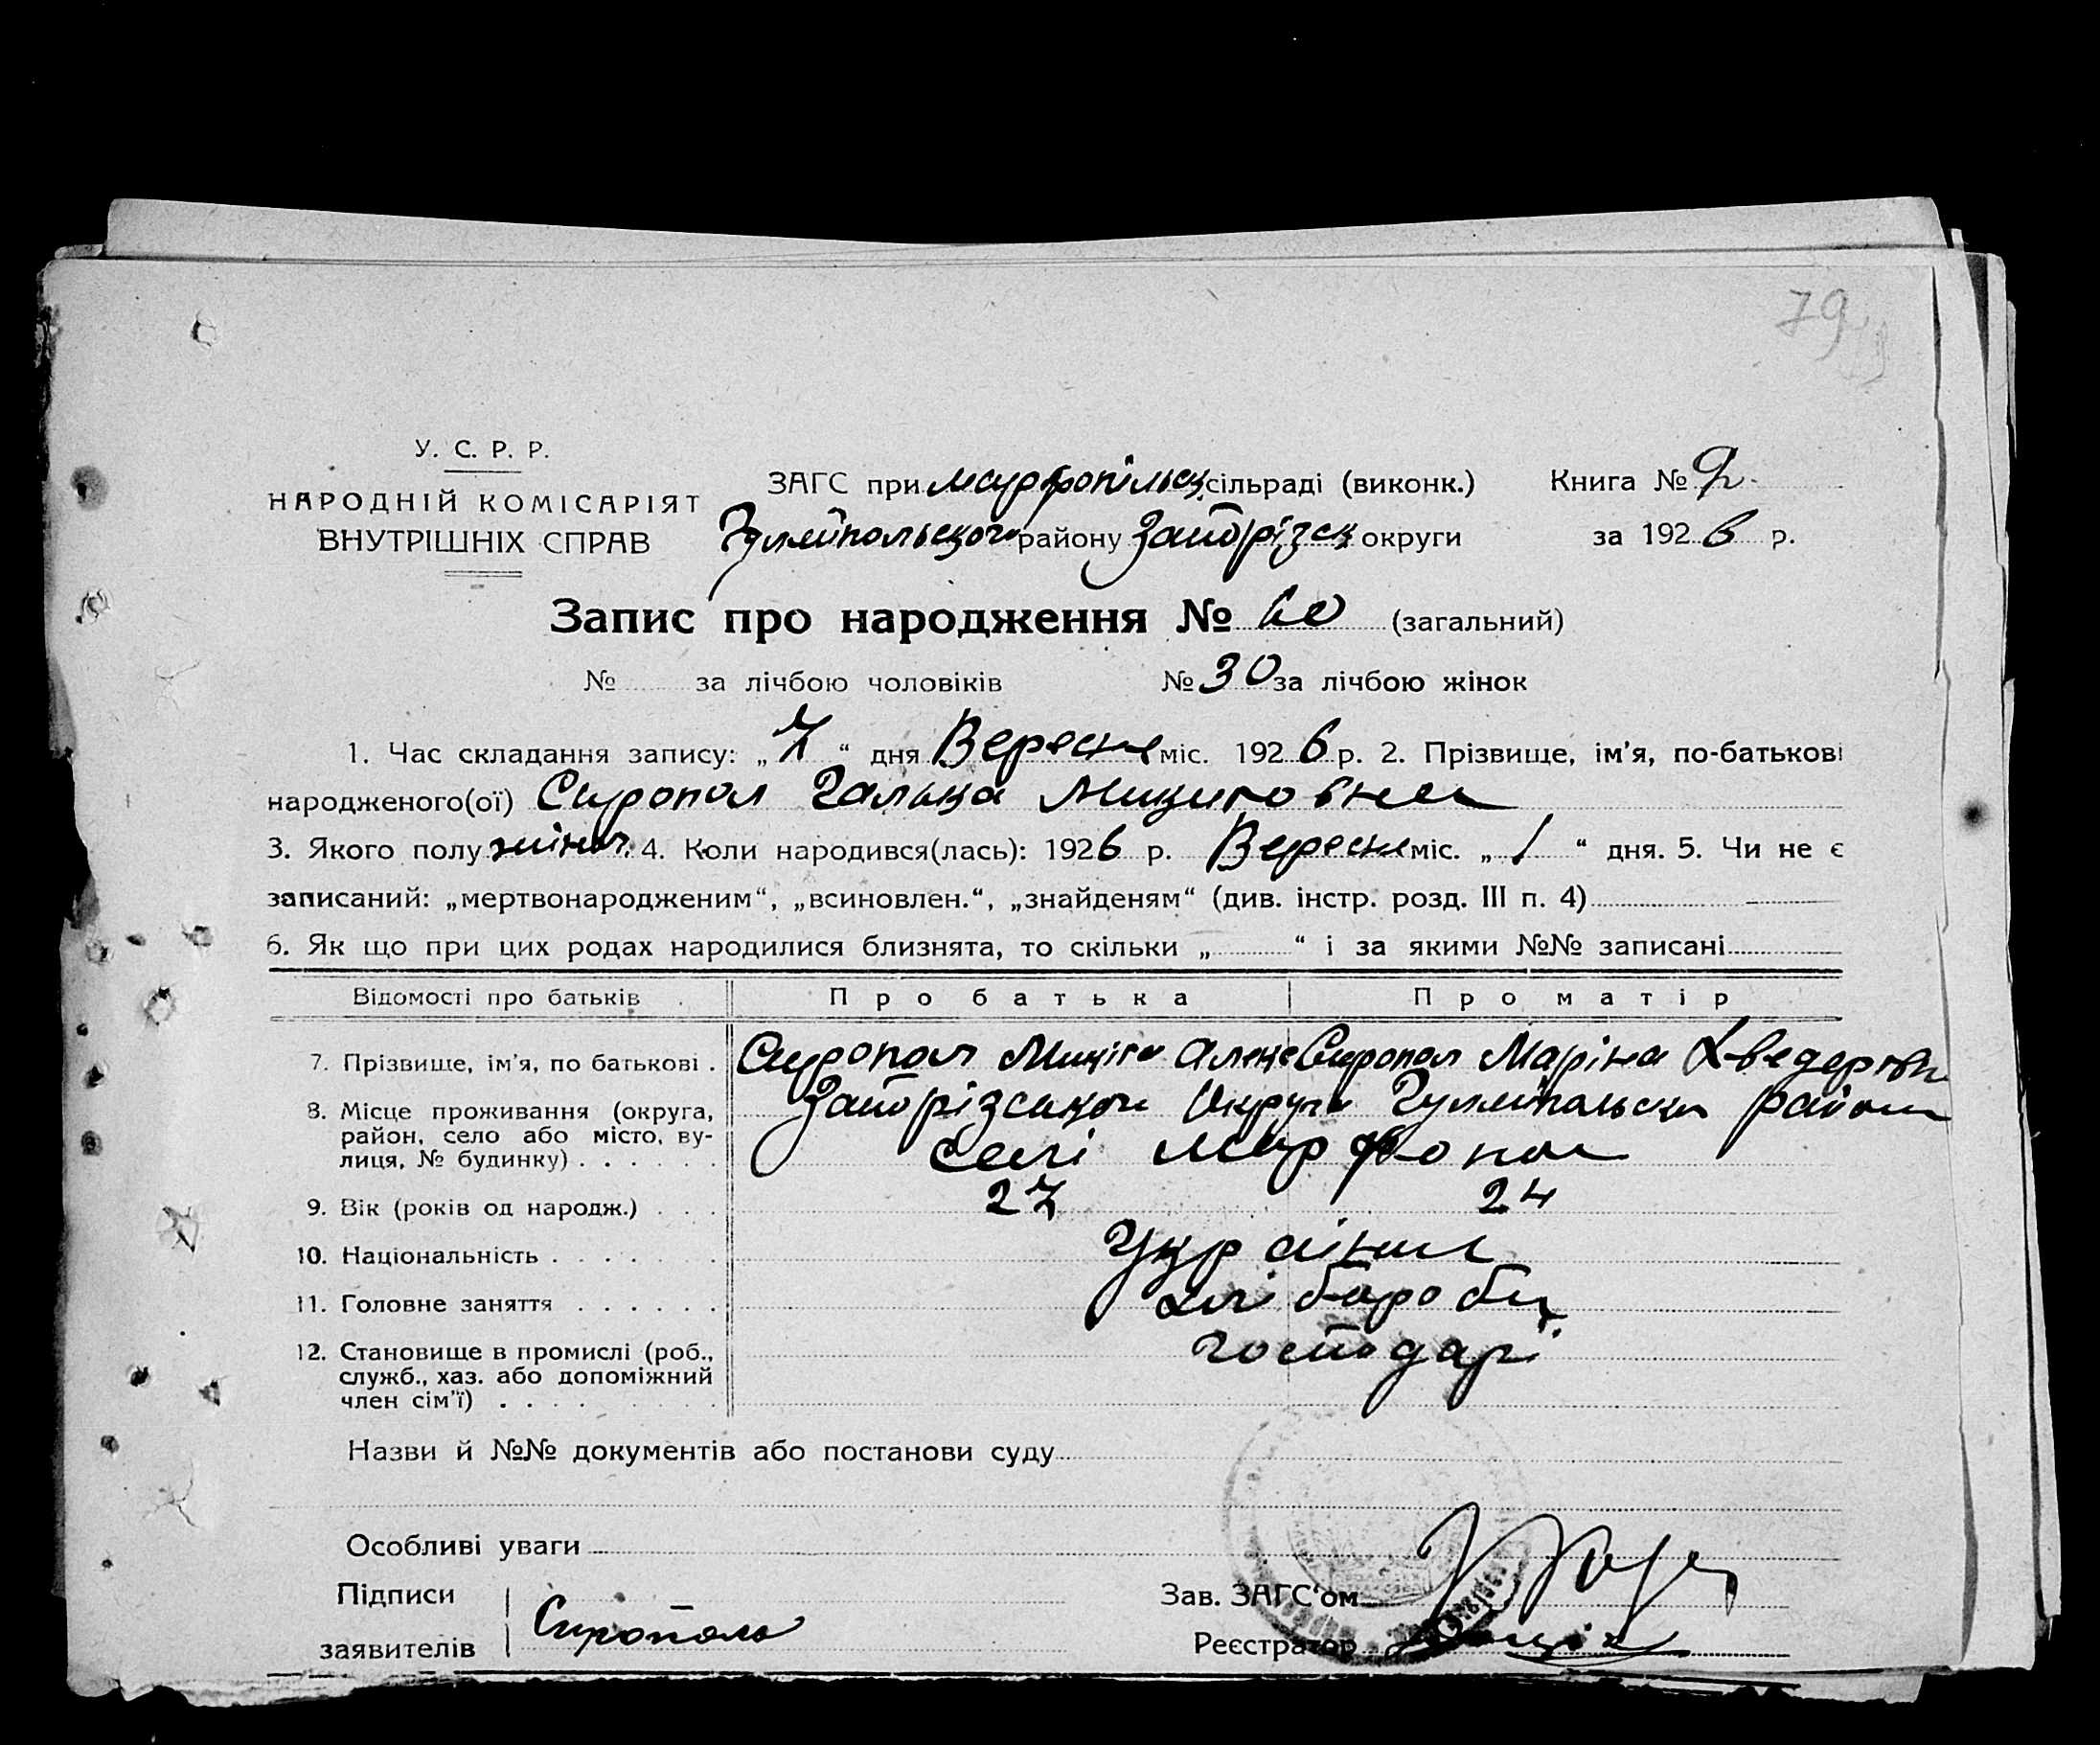 79
У. С. Р. Р.
НАРОДНІЙ КОМІСАРІЯТ
ВНУТРІШНІХ СПРАВ
ЗАГС при Марфопільск сільраді (виконк.) Книга № 2
Гуляйпольского району Запорізск округи за 1926 р.
Запис про народження № 60 (загальний)
№ за лічбою чоловіків № 30 за лічбою жінок
1. Час складання запису: „7“ дня Вересня міс. 1926 р. 2. Прізвище, ім’я, по-батькові
народженого(ої) Сиропол Галька Микитовна
3. Якого полу жіноч. 4. Коли народився(лась): 1926 р. Вересня міс. „1“ дня. 5. Чи не є
записаний: „мертвонародженим“, „всиновлен.“, „знайденям“ (див. інстр. розд. III п. 4)
6. Як що при цих родах народилися близнята, то скільки „ “ і за якими №№ записані
Відомості про батьків Про батька Про матір
7. Прізвище, ім’я, по батькові . Сиропол Микита Алекс Сиропол Маріна Хведоровн
8. Місце проживання (округа, Запорізськои Округи Гуляйпольск району
район, село або місто, ву-
лиця, № будинку) . . . . . . селі Марфопол
9. Вік (років од народж.) . . . 27 24
10. Національність . . . . . . . Українц
11. Головне заняття . . . . . . хліборобц
12. Становище в промислі (роб., господарі
служб., хаз. або допоміжний
член сім’ї) . . . . . . . . .
Назви й №№ документів або постанови суду
Особливі уваги
Підписи Зав. ЗАГС‘ом
заявителів Сирополь Реєстратор